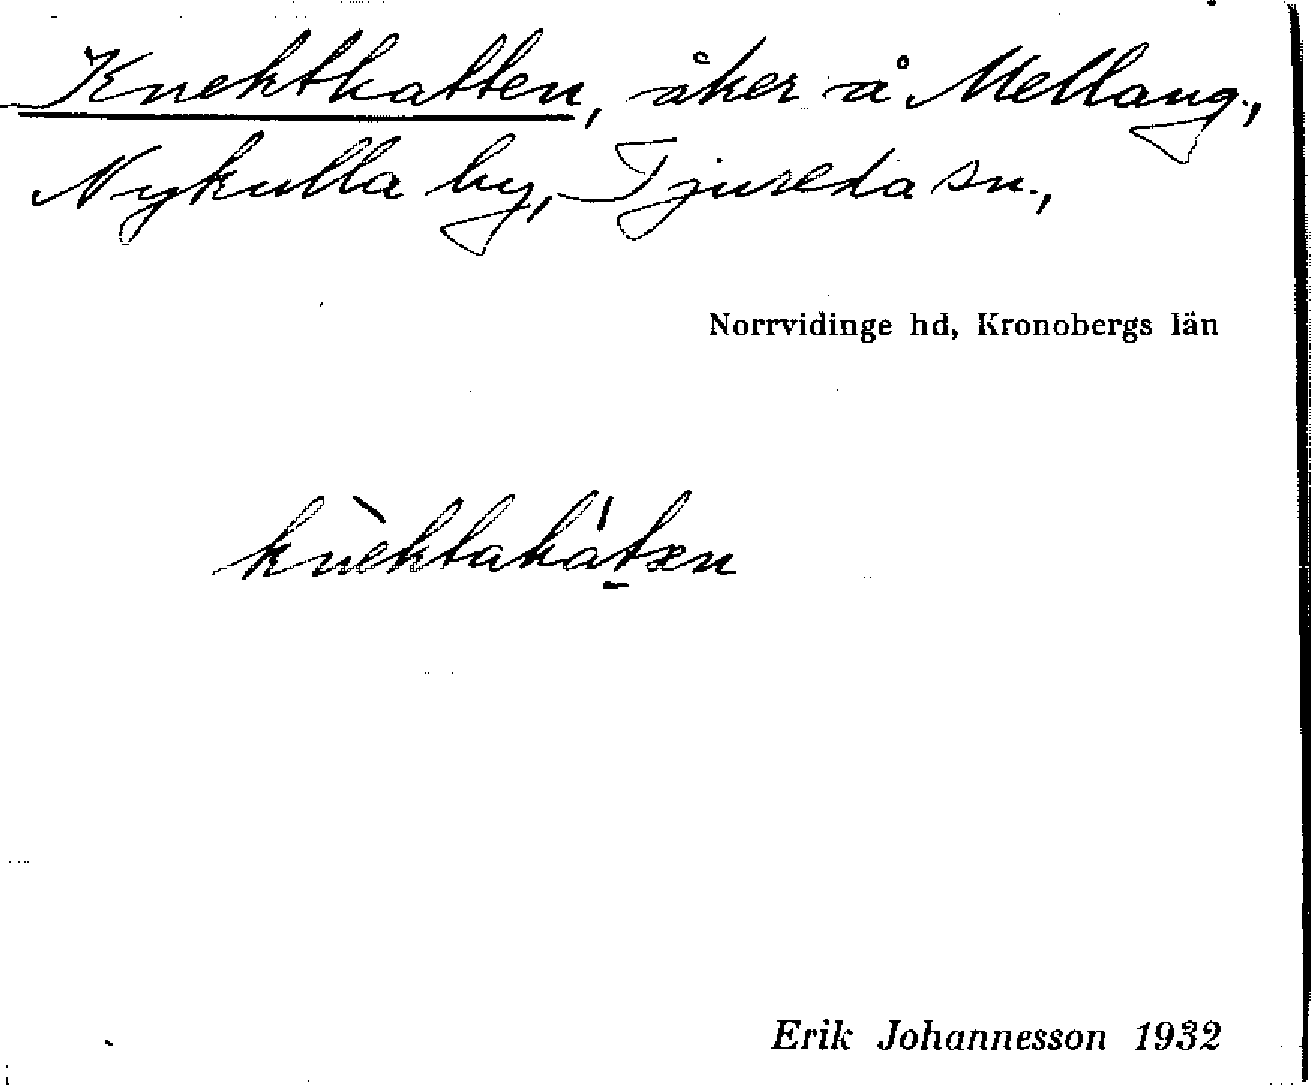 Knektkatten, åker å Mellang.,
Nykulla by, Tjureda sn.,
Norrvidinge hd, Kronobergs län
knèktakátæn
Erik Johannesson 1932